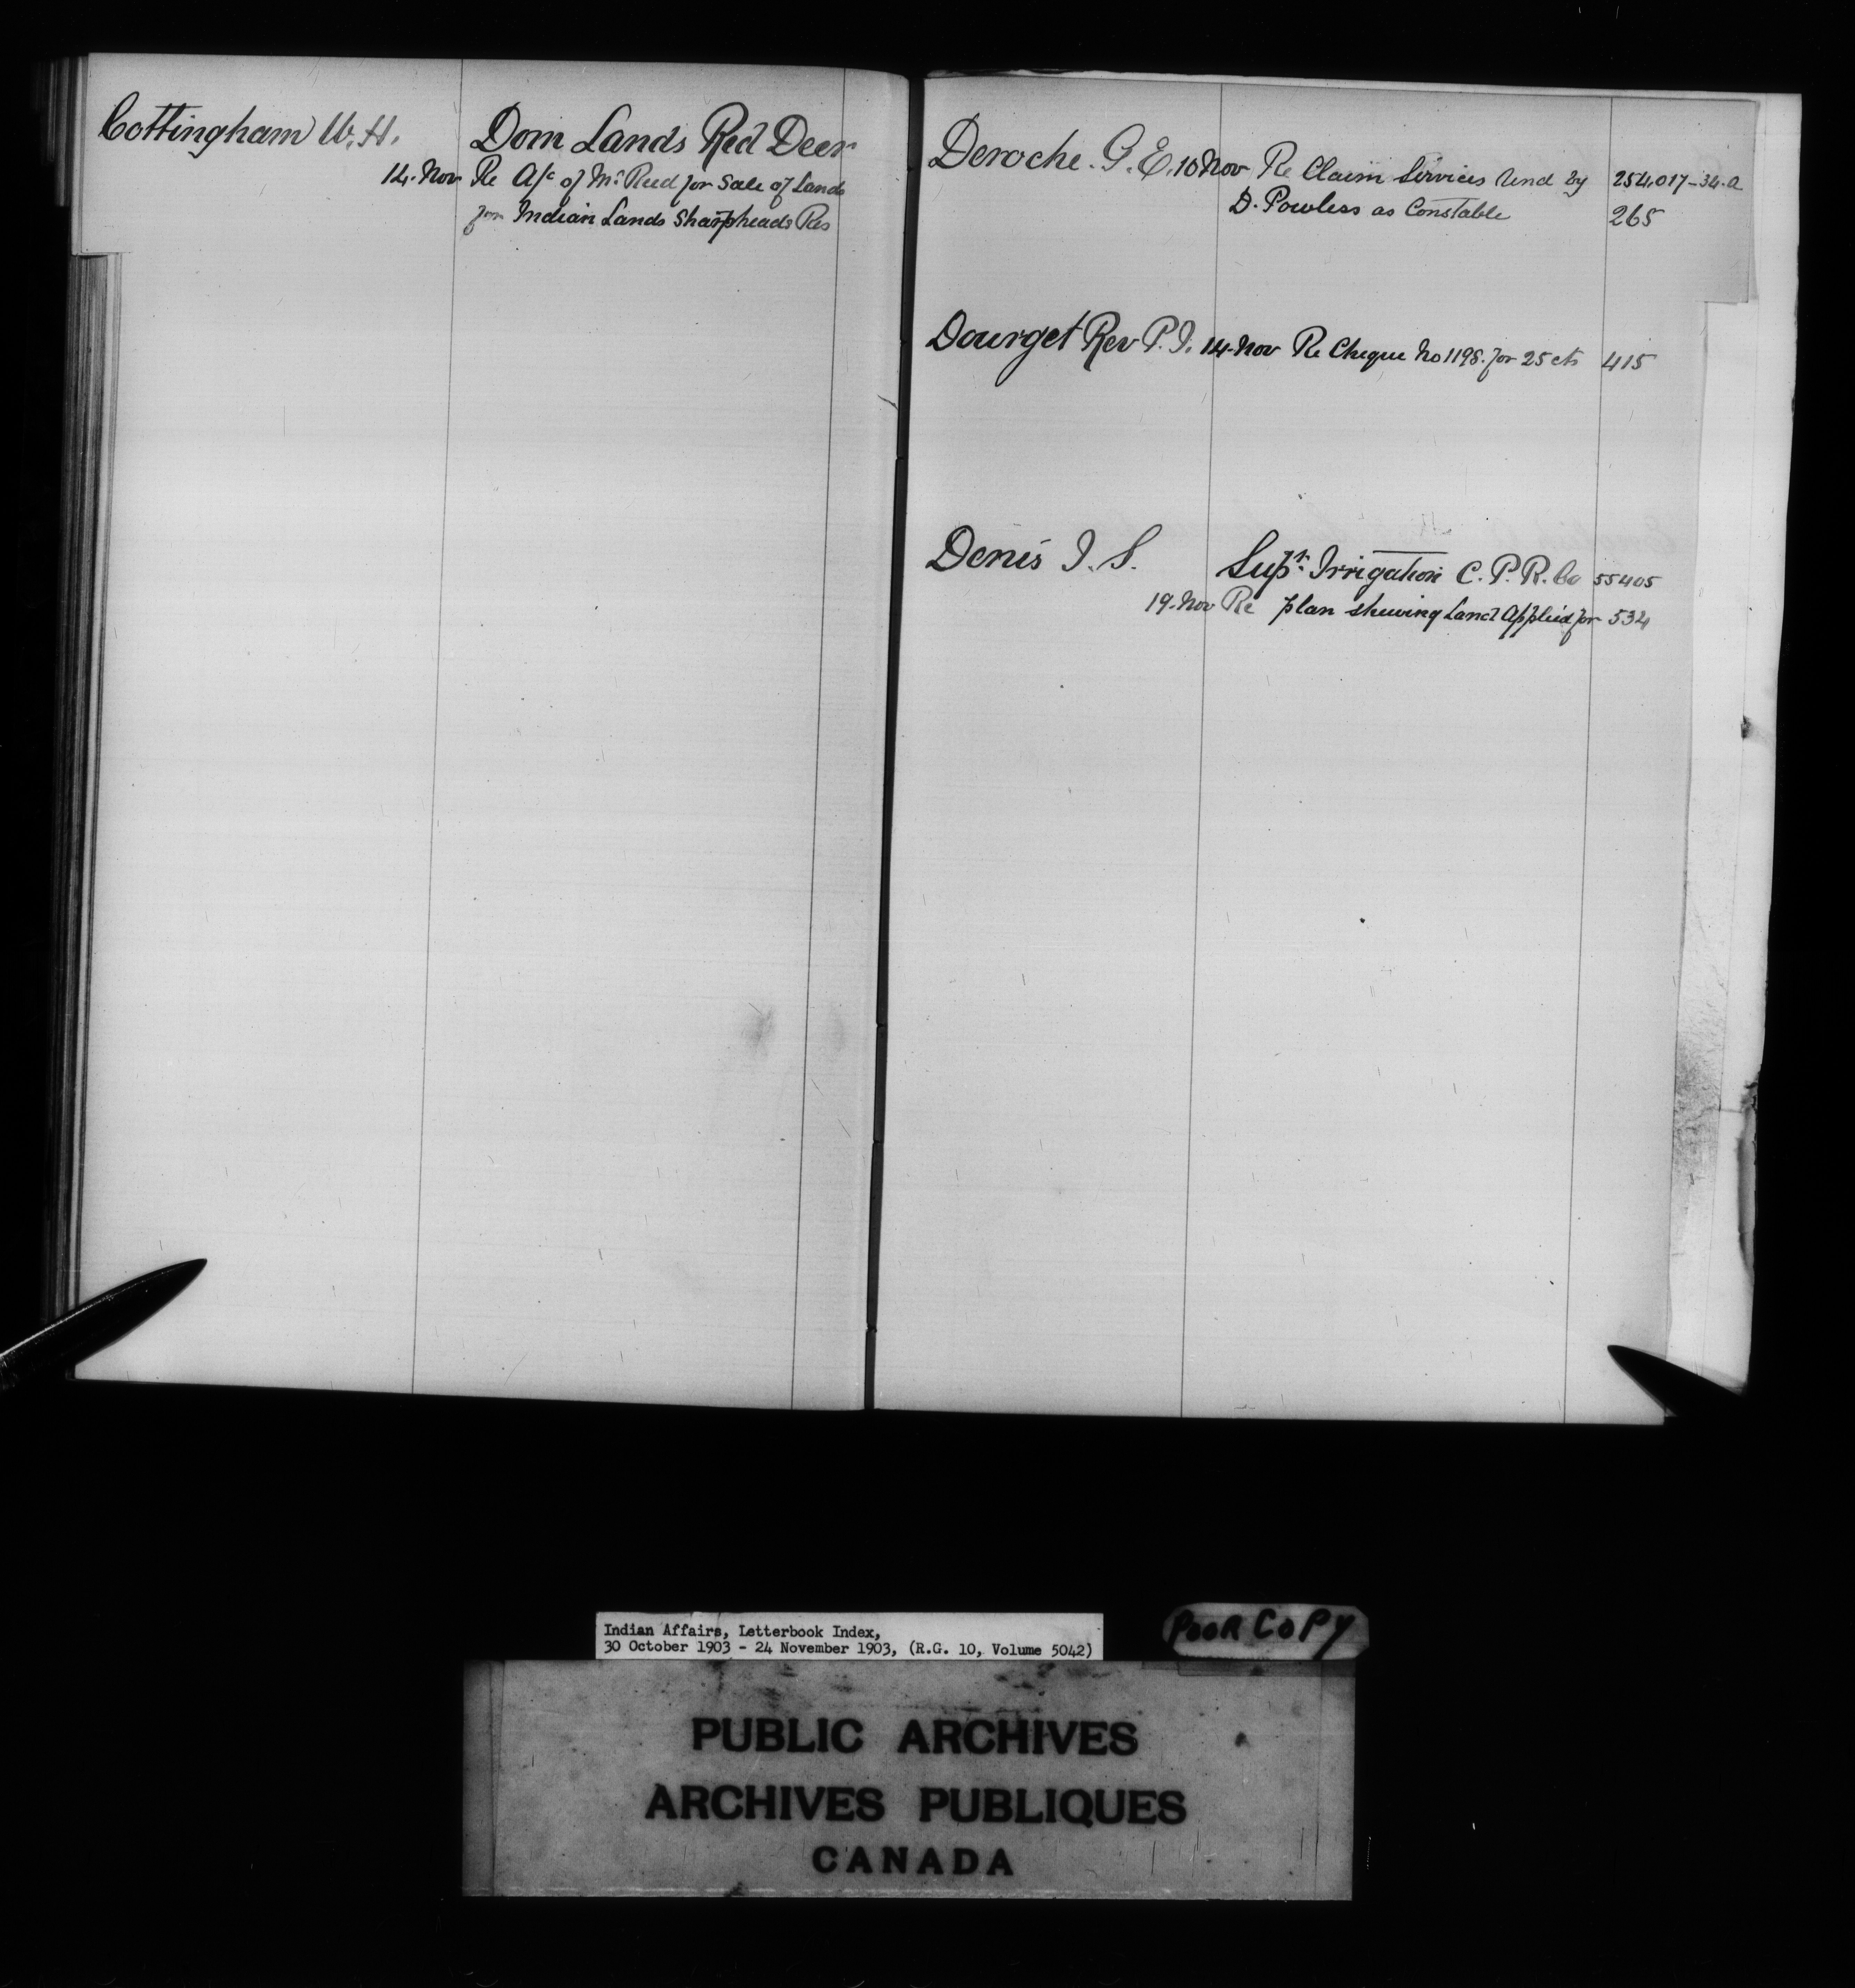 Cottingham W. H. Dom Lands Red Deer
14. Nov Re A/c of Mr Reed for Sale of Lands
for Indian Lands Sharpheads Res
Deroche. G. E. 10 Nov Re Claim Services rend by 254,017-34.a
D. Powless as Constable 265
Dourget Rev P. J. 14. Nov Re Cheque No 1198. for 25 cts 415
Denis J. S. Supt. Irrigation C. P. R. Co 55405
19. Nov Re plan shewing Land Applied for 534
POOR COPY
Indian Affairs, Letterbook Index,
30 October 1903 - 24 November 1903, (R.G. 10, Volume 5042)
PUBLIC ARCHIVES
ARCHIVES PUBLIQUES
CANADA